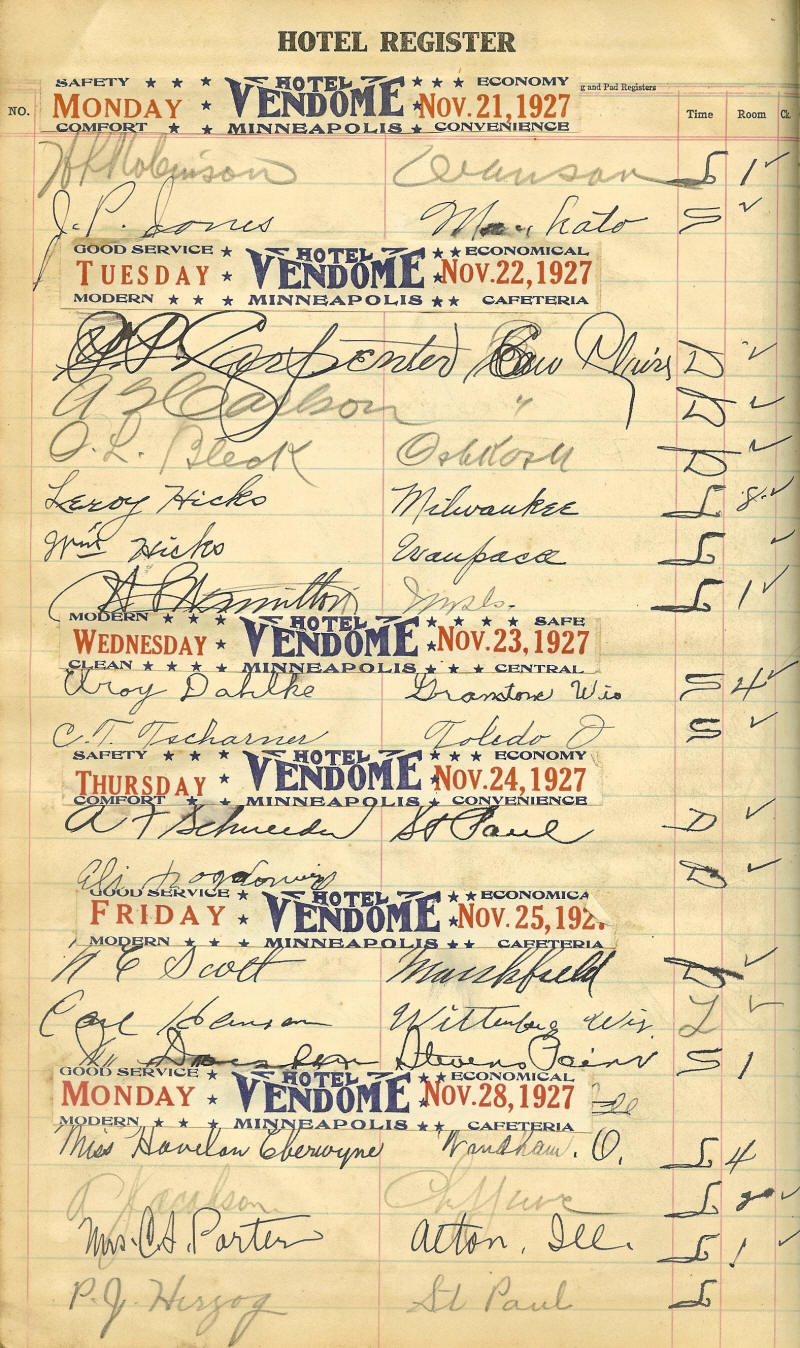 HOTEL REGISTER
g and Pad Registers
NO. Time Room Ck.
SAFETY ★ ★ ★ HOTEL ★ ★ ★ ECONOMY
MONDAY ★ VENDOME ★ Nov. 21, 1927
COMFORT ★ ★ MINNEAPOLIS ★ CONVENIENCE
Robinson L 1 ✓
J. P. Jones S ✓
GOOD SERVICE ★ HOTEL ★★ ECONOMICAL
TUESDAY ★ VENDOME ★ Nov. 22, 1927
MODERN ★ ★ ★ MINNEAPOLIS ★★ CAFETERIA
Carpenter Eau Plaine D ✓
Carlson " D ✓
O. L. Bleck Oshkosh D ✓
Leroy Hicks Milwaukee L 8 ✓
Wm Hicks Waupaca L ✓
Mpls. L 1 ✓
MODERN ★ ★ ★ HOTEL ★ ★ ★ ★ SAFE
WEDNESDAY ★ VENDOME ★ Nov. 23, 1927
CLEAN ★ ★ ★ ★ MINNEAPOLIS ★ ★ ★ CENTRAL
Dahlke Wis S 4 ✓
C. T. Tscharner Toledo O S ✓
SAFETY ★ ★ ★ HOTEL ★ ★ ★ ECONOMY
THURSDAY ★ VENDOME ★ Nov. 24, 1927
COMFORT ★ ★ MINNEAPOLIS ★ CONVENIENCE
St Paul D ✓
D ✓
GOOD SERVICE ★ HOTEL ★★ ECONOMICA
FRIDAY ★ VENDOME ★ Nov. 25, 192
MODERN ★ ★ ★ MINNEAPOLIS ★★ CAFETERIA
N E Scott Marshfield D ✓
Carl Hanson Wittenberg Wis. L ✓
Stevens Point S 1
GOOD SERVICE ★ HOTEL ★★ ECONOMICAL
MONDAY ★ VENDOME ★ Nov. 28, 1927
MODERN ★ ★ ★ MINNEAPOLIS ★★ CAFETERIA
Miss Havelon Eberwyne Windham. O. L 4
Jacobson L ✓
Mrs. C. S. Porter Alton, Ill. L 1 ✓
P. J. Herzog St Paul L